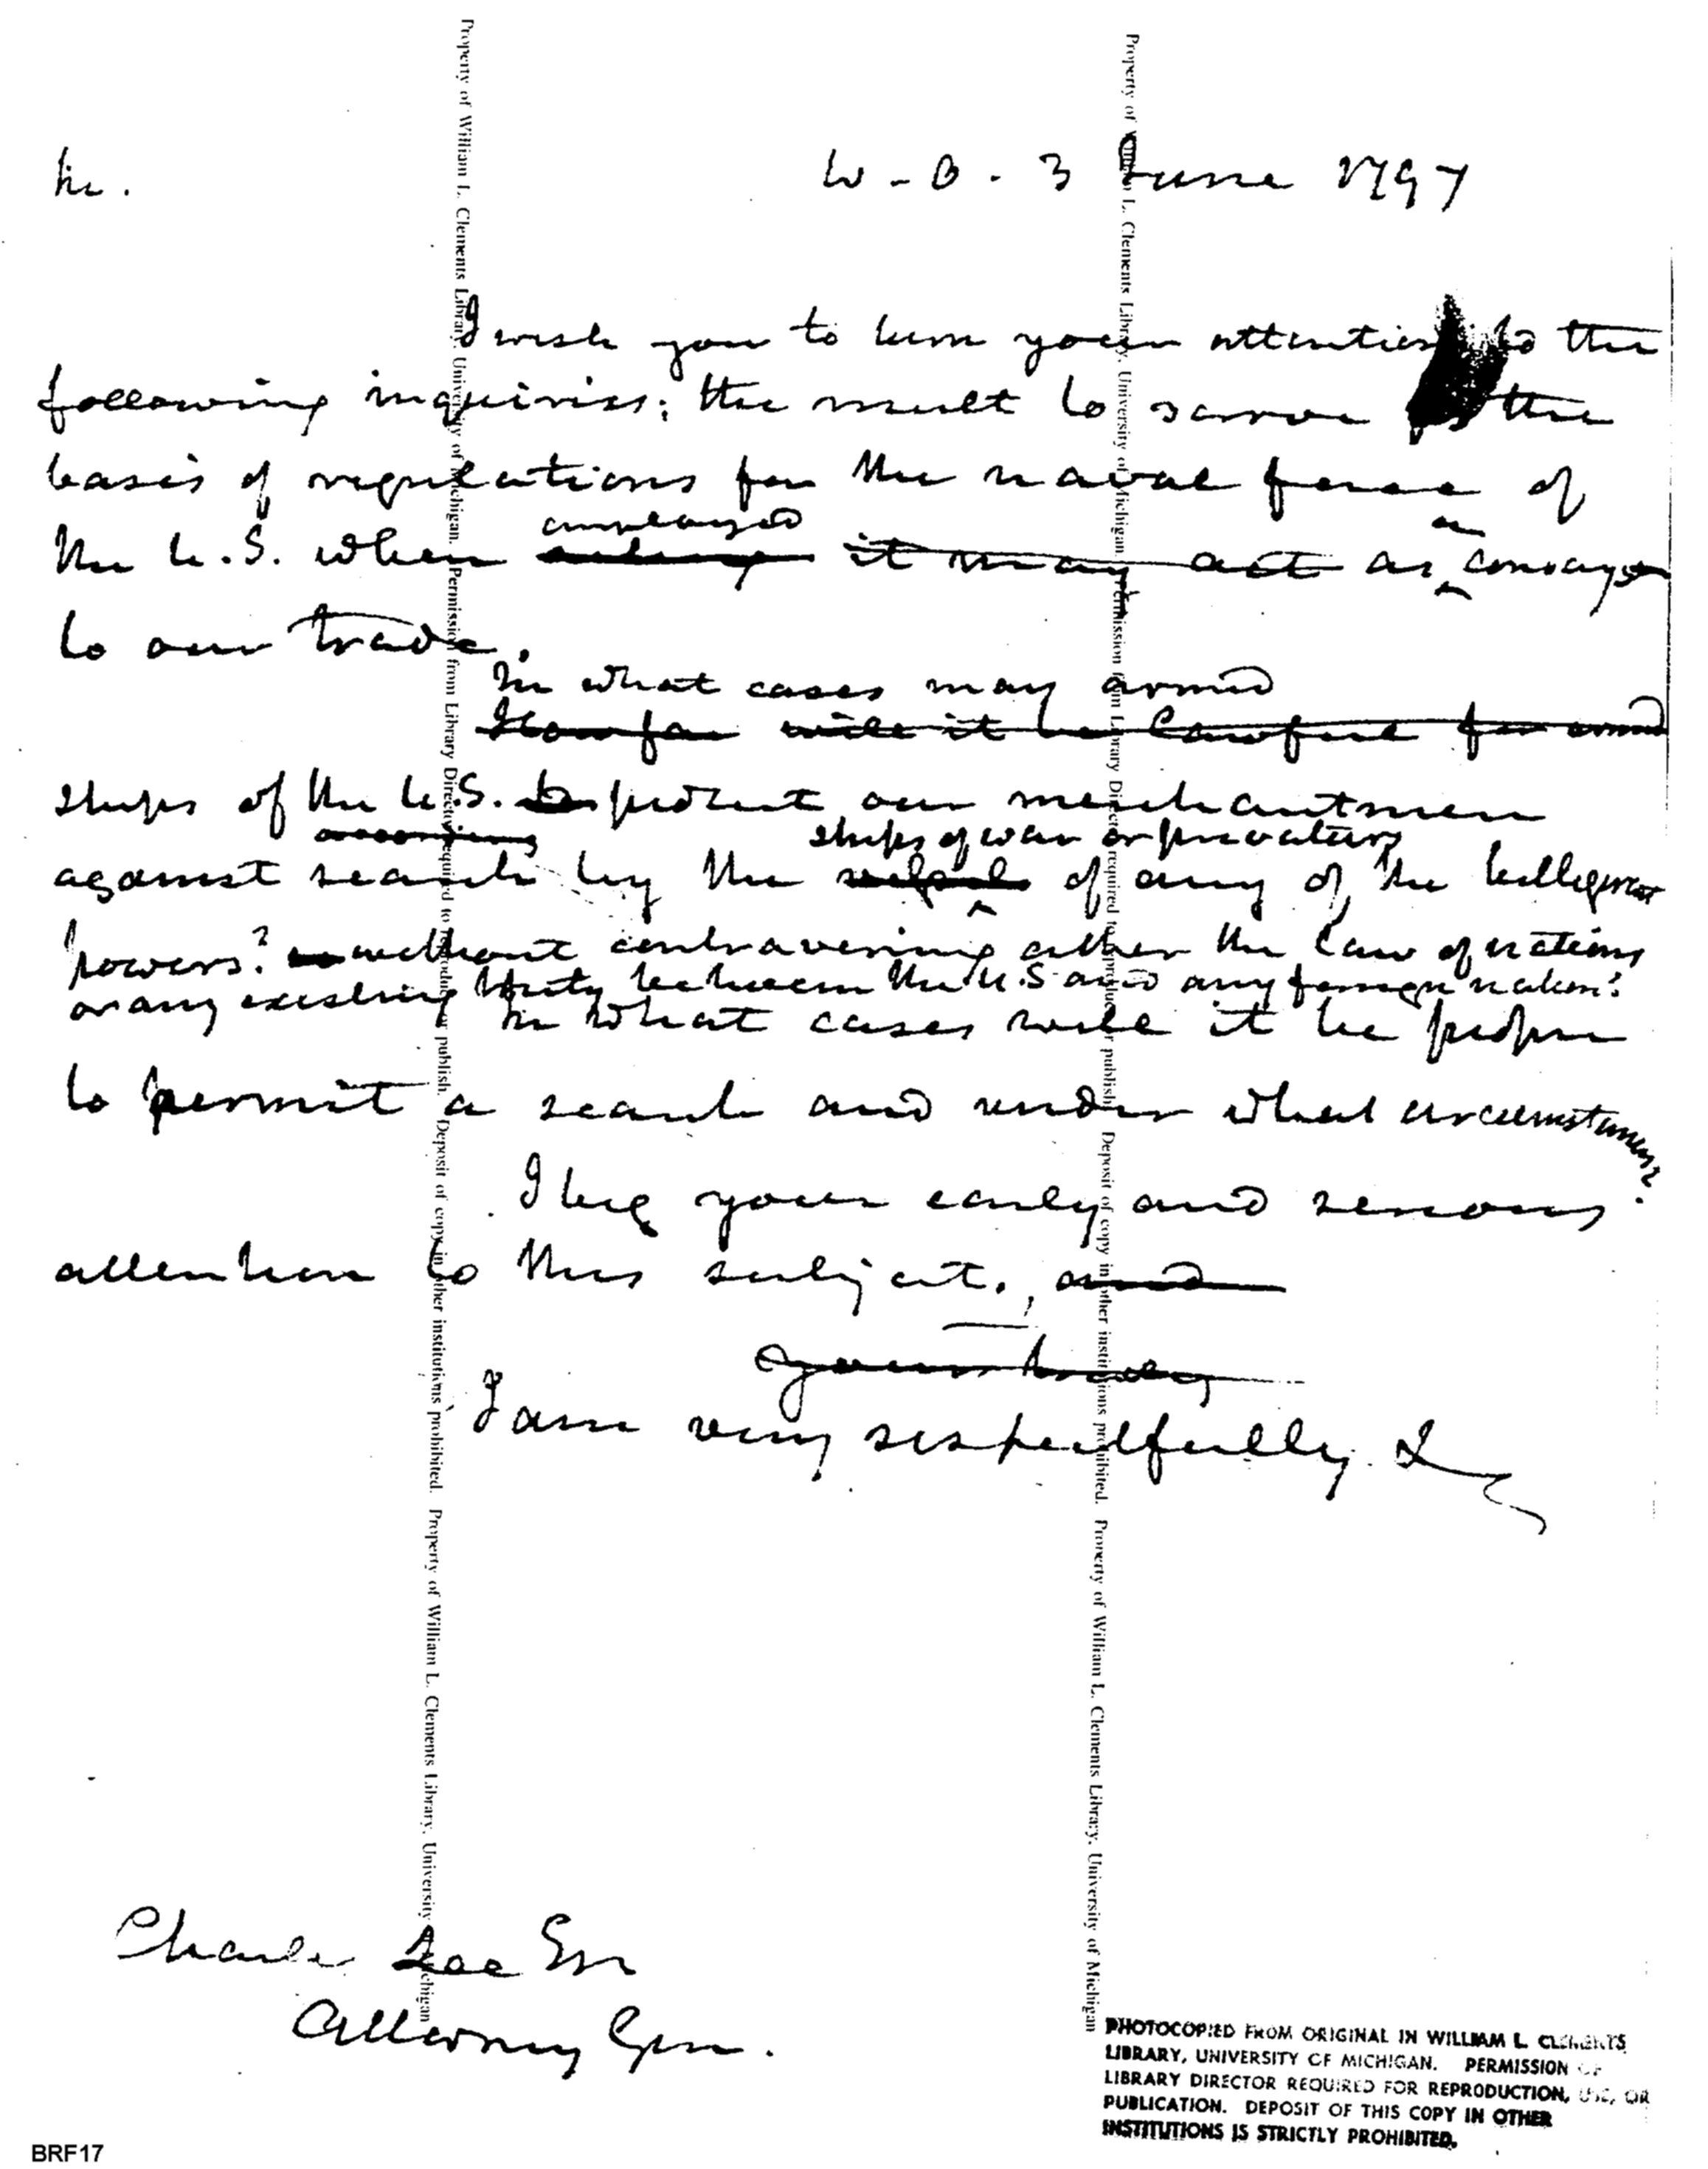 Sir.
W - O - 3 June 1797
I wish you to turn your attention to the
following inquiries; the result to serve as the
basis of regulations for the naval force of
employed
the U.S. when it may act as a convoy
to our trade.
In what cases may armed
How far will it be lawful for armed
ships of the U.S. to protect our merchantmen
ships of war or privateers
against search by the vessels of any of the belligerent
powers? without contravening either the law of nations
or any existing treaty between the U.S and any foreign nation?
In what cases will it be proper
to permit a search and under what circumstances?
I beg your early and serious
attention to this subject., and
yours truly
I am very respectfully &
Charles Lee Esr
Attorney Gen.
Property of William L. Clements Library, University of Michigan. Permission from Library Director required to reproduce or publish. Deposit of copy in other institutions prohibited. Property of William L. Clements Library, University of Michigan
Property of William L. Clements Library, University of Michigan. Permission from Library Director required to reproduce or publish. Deposit of copy in other institutions prohibited. Property of William L. Clements Library, University of Michigan
PHOTOCOPIED FROM ORIGINAL IN WILLIAM L. CLEMENTS
LIBRARY, UNIVERSITY OF MICHIGAN. PERMISSION OF
LIBRARY DIRECTOR REQUIRED FOR REPRODUCTION, USE, OR
PUBLICATION. DEPOSIT OF THIS COPY IN OTHER
INSTITUTIONS IS STRICTLY PROHIBITED.
BRF17